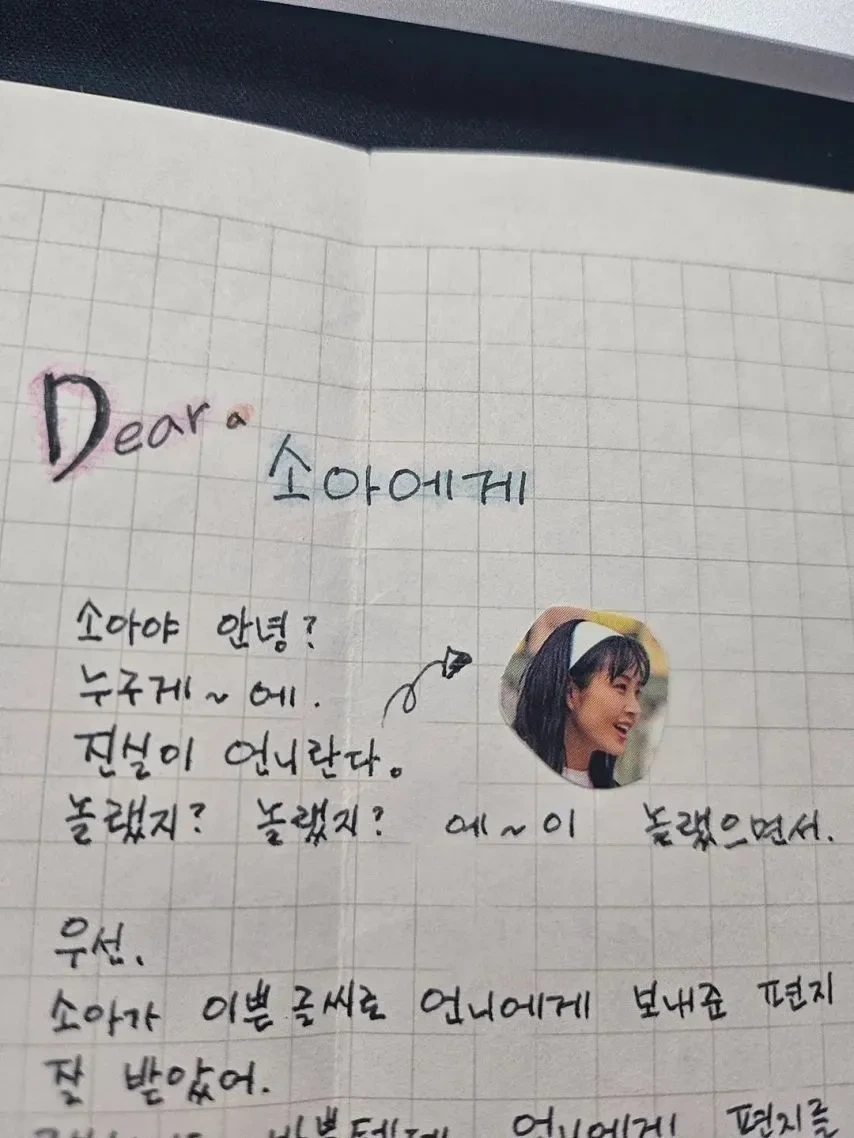 Dear a
소아에게
소아야 안녕?
누구게~에.
진실이 언니란다.
놀랬지? 놀랬지? 에~이 놀랬으면서.
우선.
소아가 이쁜 글씨로 언니에게 보내준 편지
잘 받았어.
바쁠텐데 언니에게 편지를